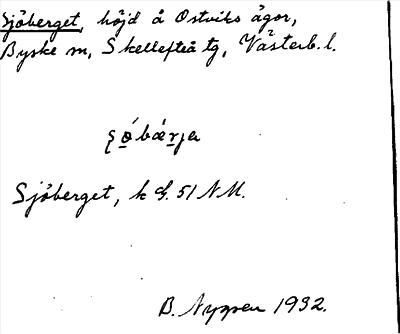 Sjöberget, höjd å Ostviks ägor,
Byske sn, Skellefteå tg, Västerb. l.
Sjöberget, k G. 51 NM.
B. Nygren 1932.